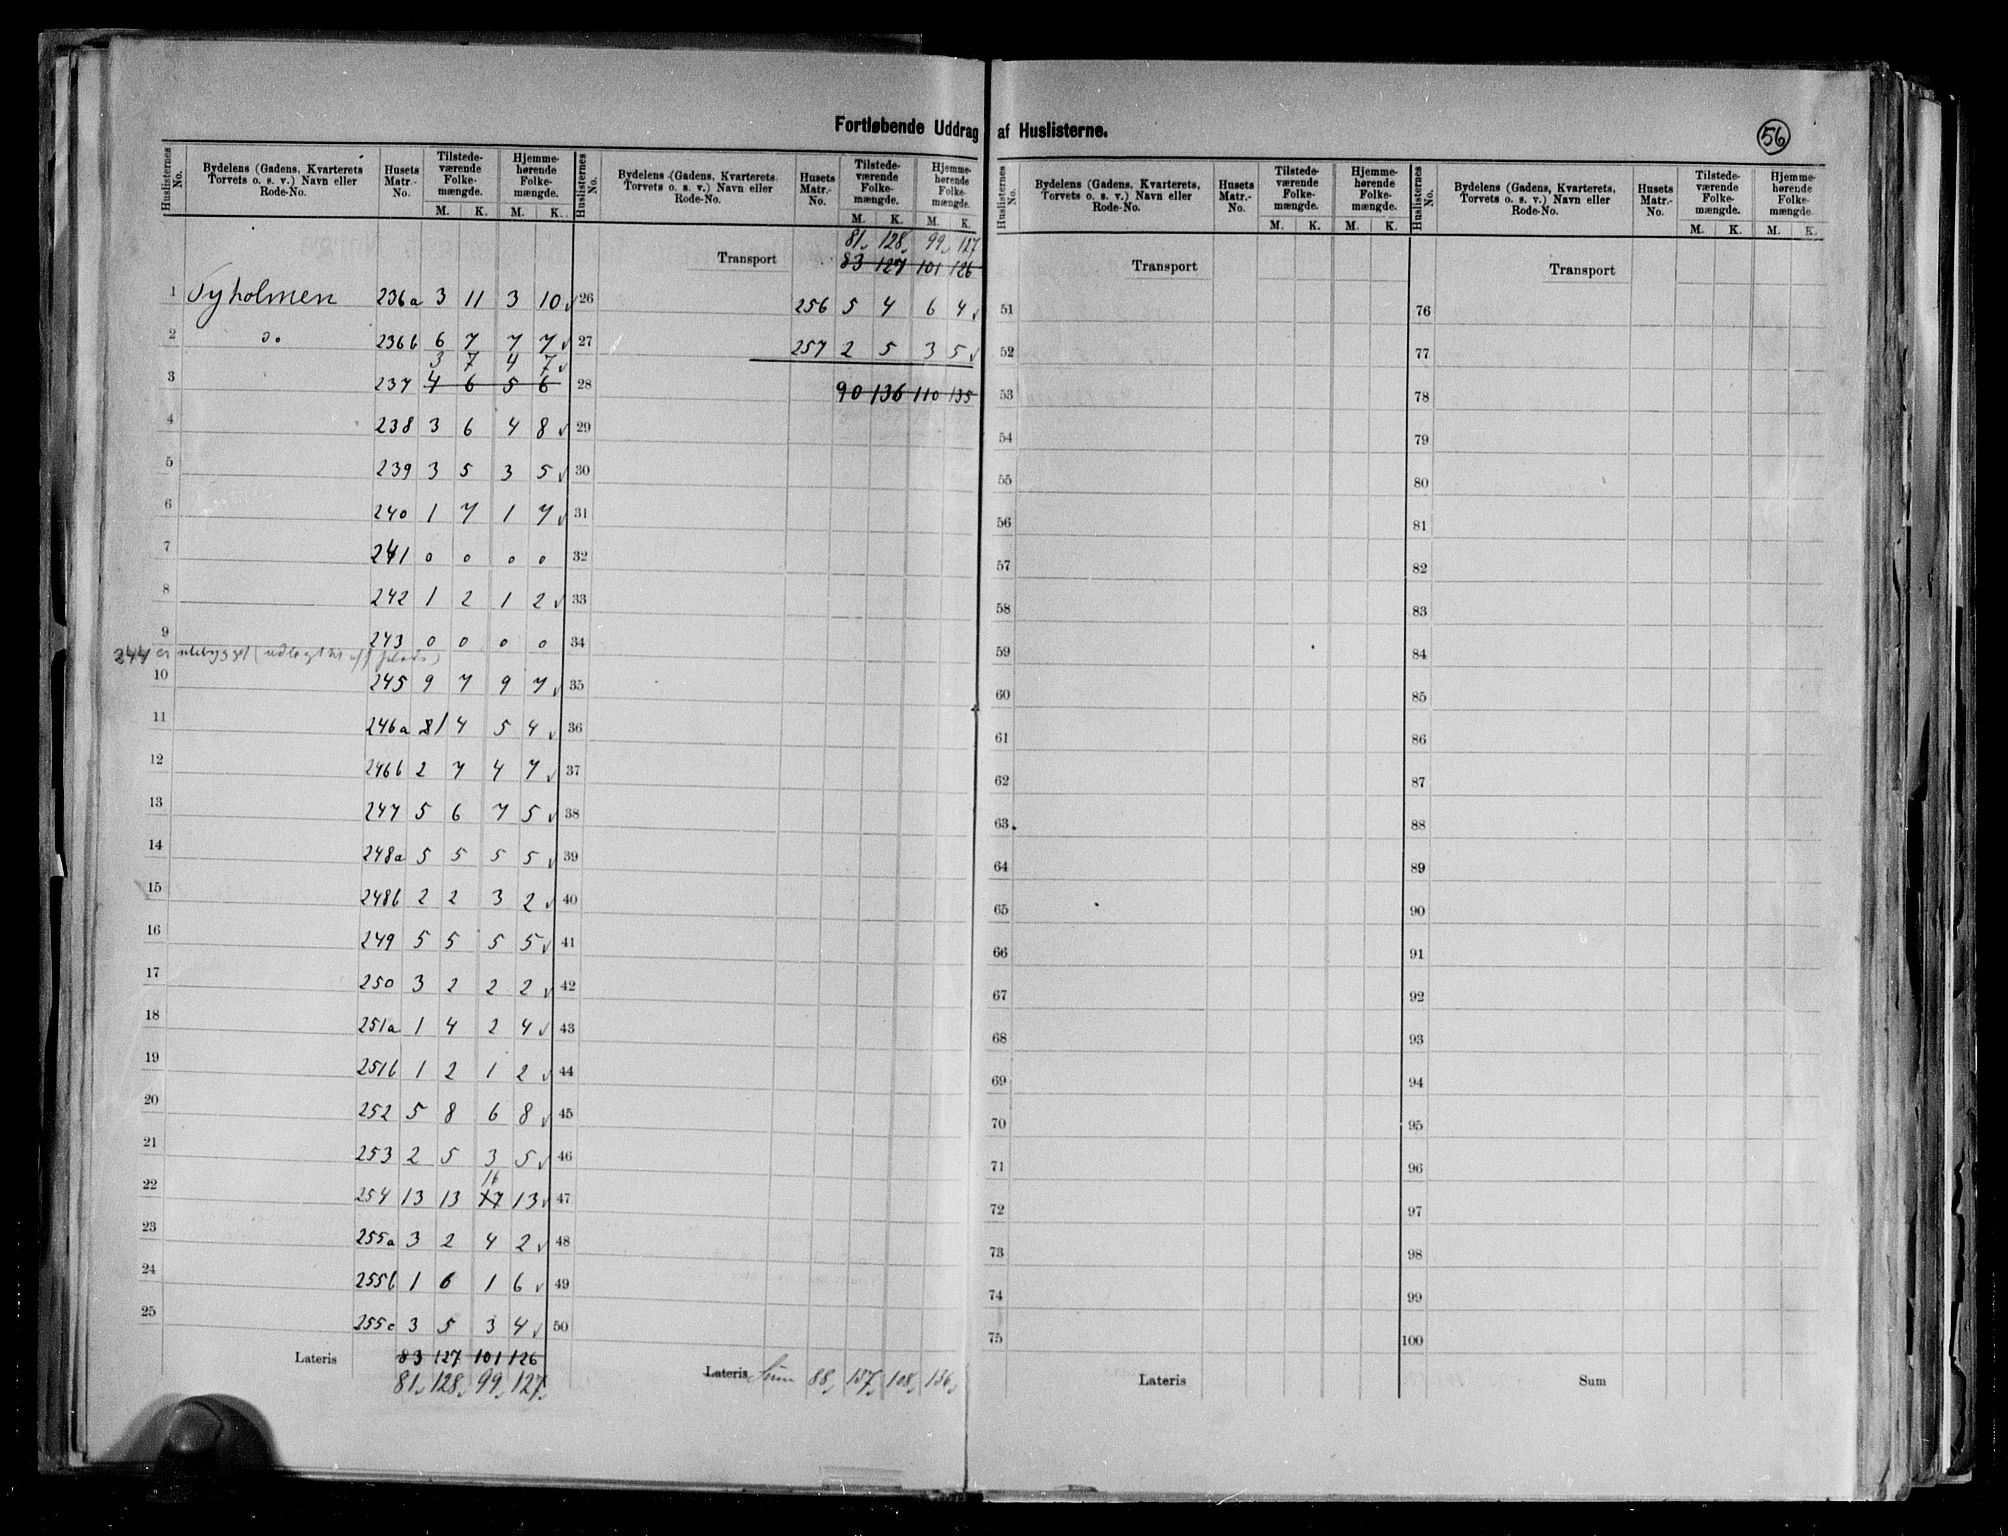 Fortløbende Uddrag af Huslisterne.
56
Huslisternes No. | Bydelens (Gadens, Kvarterets Torvets o. s. v.) Navn eller Rode-No. | Husets Matr.-No. | Tilstede-værende Folke-mængde. M. K. | Hjemme-hørende Folke-mængde. M. K.
1 Tyholmen 236a 3 11 3 10 v
2 do 236b 6 7 7 7 v
3 7 4 7 v
3 237 4 6 5 6
4 238 3 6 4 8 v
5 239 3 5 3 5 v
6 240 1 7 1 7 v
7 241 0 0 0 0
8 242 1 2 1 2 v
9 243 0 0 0 0
244 er ubebygget (udlagt til off plads)
10 245 9 7 9 7 v
11 246a 1 4 5 4 v
12 246b 2 7 4 7 v
13 247 5 6 7 5 v
14 248a 5 5 5 5 v
15 248b 2 2 3 2 v
16 249 5 5 5 5 v
17 250 3 2 2 2 v
18 251a 1 4 2 4 v
19 251b 1 2 1 2 v
20 252 5 8 6 8 v
21 253 2 5 3 5 v
16
22 254 13 13 17 13 v
23 255a 3 2 4 2 v
24 255b 1 6 1 6 v
25 255c 3 5 3 4 v
Lateris 83 127 101 126
81 128 99 127
Huslisternes No. | Bydelens (Gadens, Kvarterets, Torvets o. s. v.) Navn eller Rode-No. | Husets Matr.-No. | Tilstede-værende Folke-mængde. M. K. | Hjemme-hørende Folke-mængde. M. K.
81 128 99 127
Transport 83 127 101 126
26 256 5 4 6 4 v
27 257 2 5 3 5 v
28 90 136 110 135
29
30
31
32
33
34
35
36
37
38
39
40
41
42
43
44
45
46
47
48
49
50
Lateris Sum 88 137 108 136
Huslisternes No. | Bydelens (Gadens, Kvarterets, Torvets o. s. v.) Navn eller Rode-No. | Husets Matr.-No. | Tilstede-værende Folke-mængde. M. K. | Hjemme-hørende Folke-mængde. M. K.
Transport
51
52
53
54
55
56
57
58
59
60
61
62
63
64
65
66
67
68
69
70
71
72
73
74
75
Lateris
Huslisternes No. | Bydelens (Gadens, Kvarterets, Torvets o. s. v.) Navn eller Rode-No. | Husets Matr.-No. | Tilstede-værende Folke-mængde. M. K. | Hjemme-hørende Folke-mængde. M. K.
Transport
76
77
78
79
80
81
82
83
84
85
86
87
88
89
90
91
92
93
94
95
96
97
98
99
100
Sum